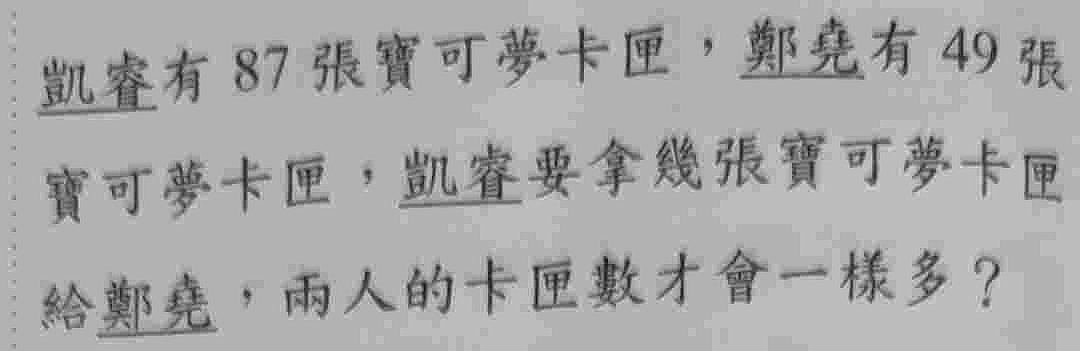 凱睿有 87 張寶可夢卡匣，鄭堯有 49 張
寶可夢卡匣，凱睿要拿幾張寶可夢卡匣
給鄭堯，兩人的卡匣數才會一樣多？